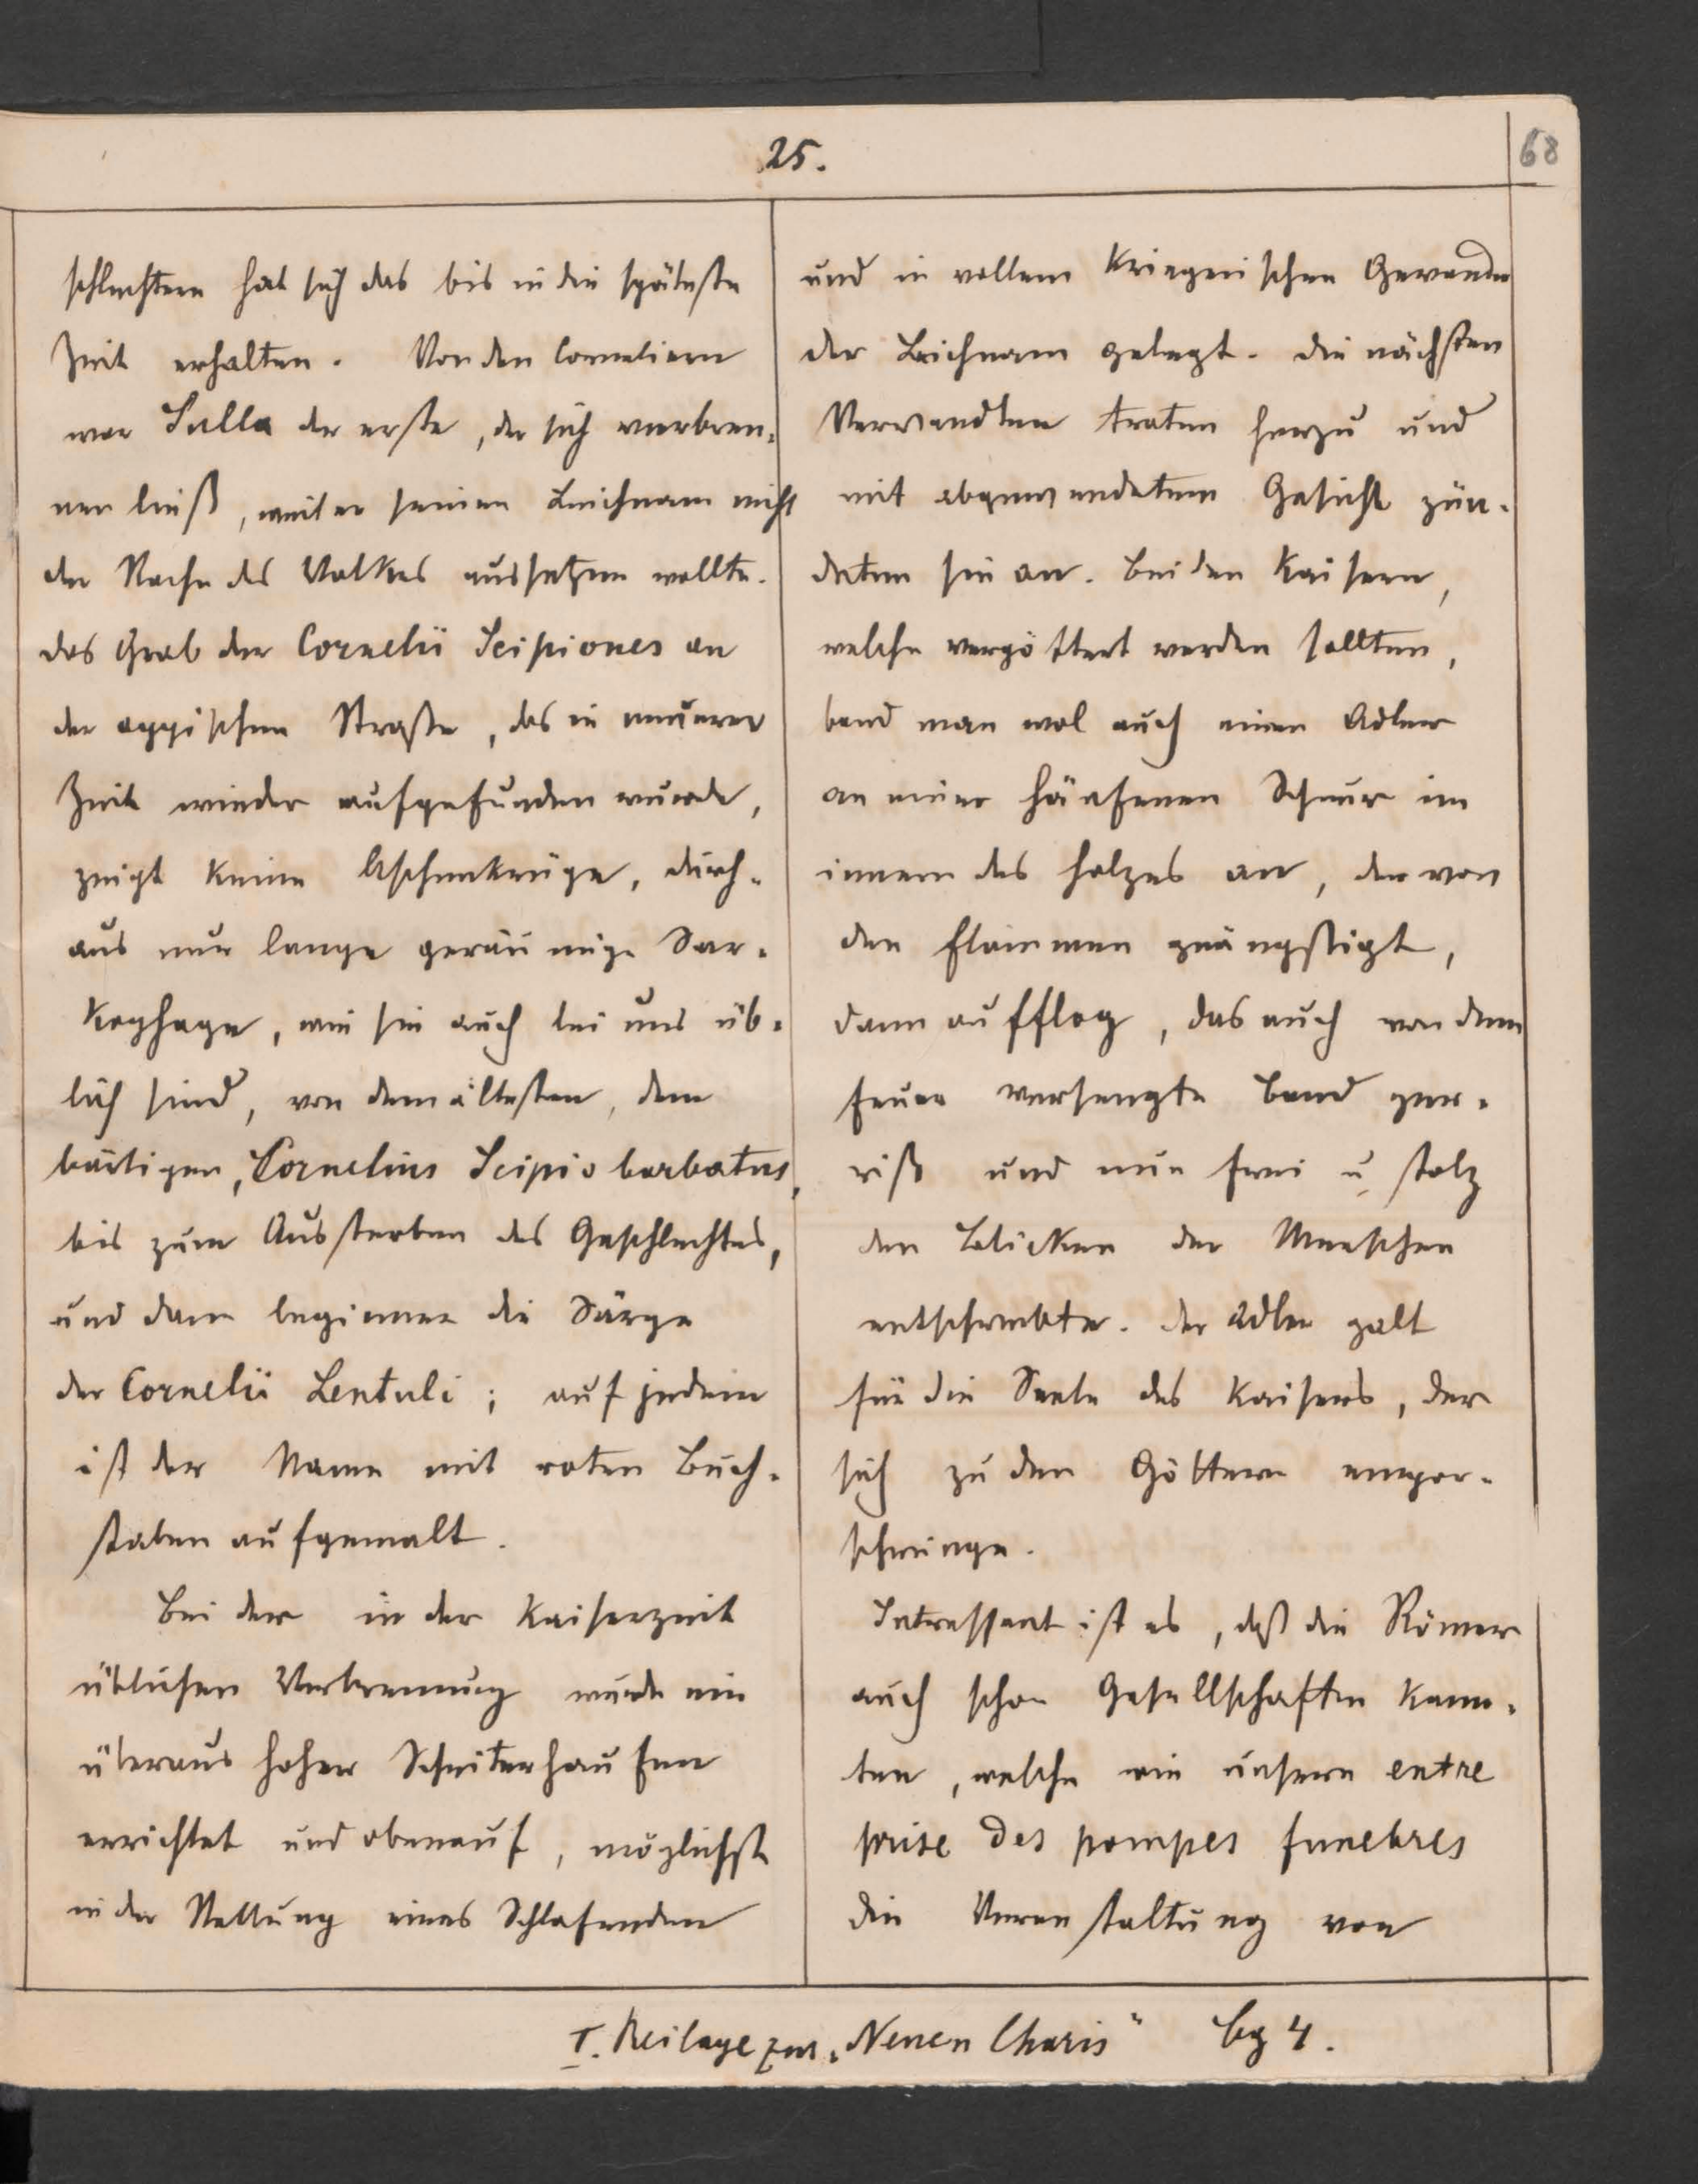 25.
68
schlechtern hat sich das bis in die späteste
Zeit erhalten. Von den Corneliern
war Sulla der erste, der sich verbren-
nen ließ, weil er seinen Leichnam nicht
der Rache des Volkes aussetzen wollte.
das Grab der Cornelii Scipiones an
der appischen Straße, das in neuerer
Zeit wieder aufgefunden wurde,
zeigt keine Aschenkrüge, durch-
aus nur lange geräumige Sar-
kophage, wie sie auch bei uns üb-
lich sind, von dem ältesten, dem
bärtigen, Cornelius Scipio barbatus,
bis zum Aussterben des Geschlechtes,
und dann beginnen die Särge
der Cornelii Lentuli; auf jedem
ist der Name mit roten Buch-
staben aufgemalt.
Bei der in der Kaiserzeit
üblichen Verbrennung wurde ein
überaus hoher Scheiterhaufen
errichtet und obenauf, möglichst
in der Stellung eines Schlafenden
und in vollem kriegerischen Gewande
der Leichnam gelegt. die nächsten
Verwandten traten herzu und
mit abgewendetem Gesicht zün-
deten sie an. Bei den Kaisern,
welche vergöttert werden sollten,
band man wol auch einen Adler
an einer hänfenen Schnur im
innern des Holzes an, der von
den Flammen geängstigt,
dann aufflog, das auch von dem
Feuer versengte Band zer-
riß und nun frei u. stolz
den Blicken der Menschen
entschwebte. der Adler galt
für die Seele des Kaisers, der
sich zu den Göttern empor-
schwinge.
Intressant ist es, daß die Römer
auch schon Gesellschaften kann-
ten, welche wie unsere entre
prise des pompes funebres
die Veranstaltung von
I. Beilage zur „Neuen Charis" Bg 4.